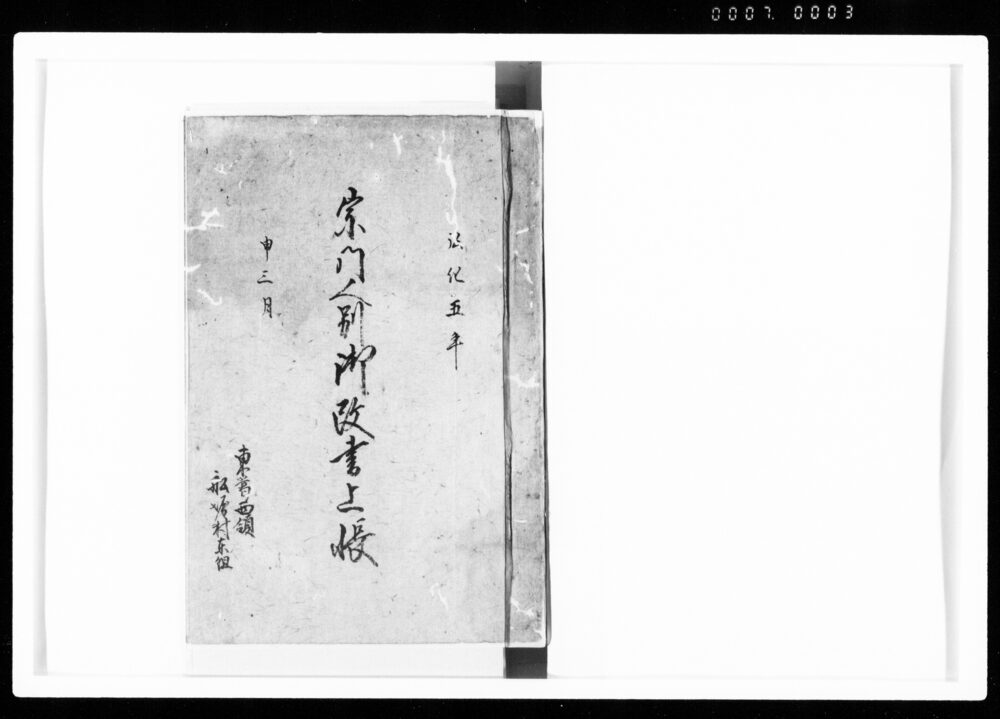 0007. 0003
弘化五年
宗門人別御改書上帳
申三月
東葛西領
舩堀村東組